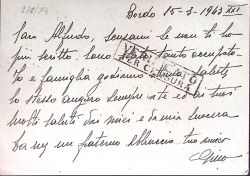 278/74
Bordo 15-3-1943 XXI
Caro Alfredo, scusami se non ti ho
più scritto, sono stato tanto occupato
Io e famiglia godiamo ottima salute
lo stesso auguro sempre a te ed ai tuoi
molti saluti dai miei e da mia suocera
un fraterno abbraccio tuo amico
Gino
VERIFICATO PER CENSURA